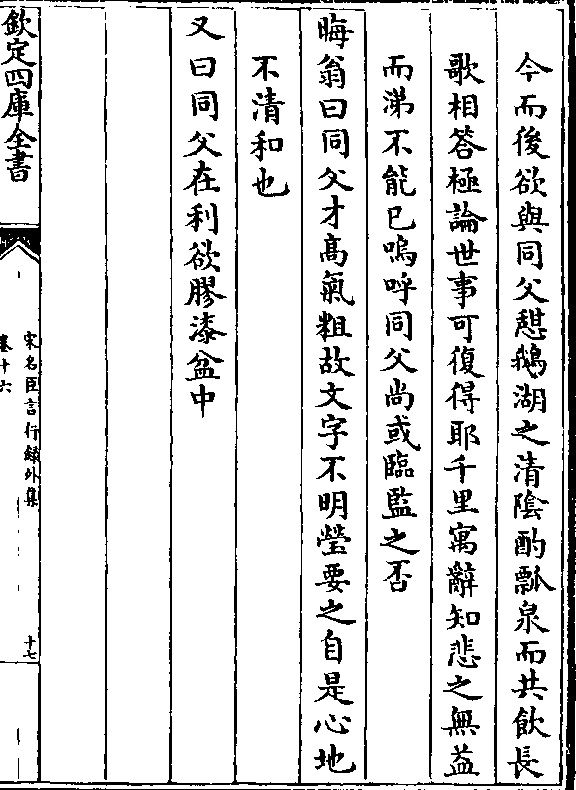 今而後欲與同父憇鵝湖之清隂酌瓢泉而共飲長
歌相答極論世事可復得耶千里寓辭知悲之無益
而涕不能已嗚呼同父尚或臨監之否
晦翁曰同父才髙氣粗故文字不明瑩要之自是心地
不清和也
又曰同父在利欲膠漆盆中
欽定四庫全書
宋名臣言行録外集
卷十六
十七